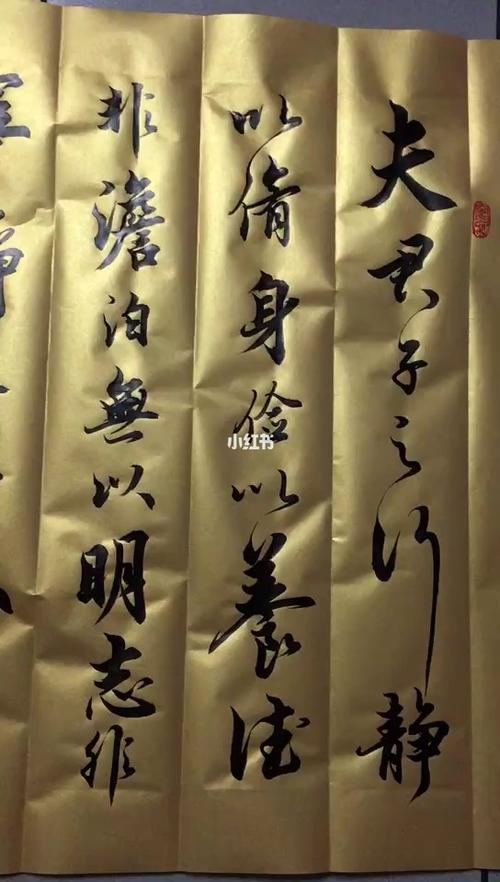 夫君子之行静
以脩身俭以養德
非澹泊無以明志非
小红书